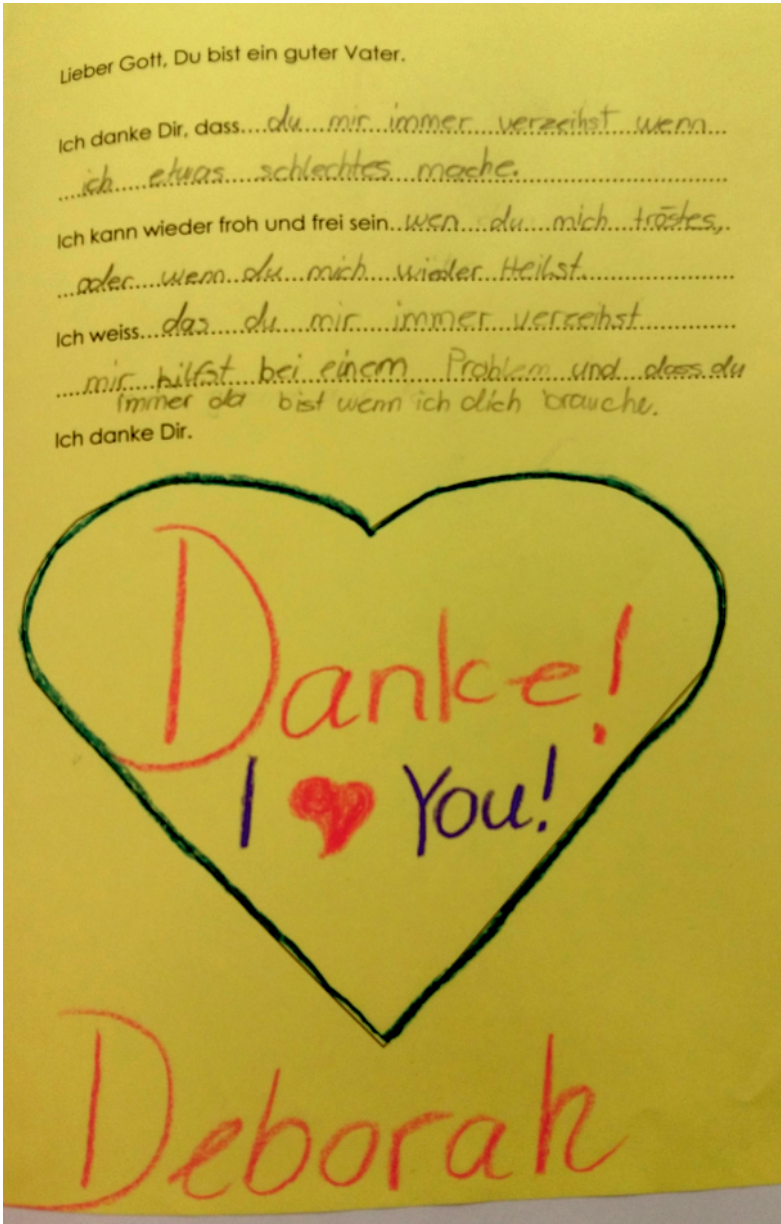 Lieber Gott, Du bist ein guter Vater.
Ich danke Dir, dass....du mir immer verzeihst wenn
ich etwas schlechtes mache.
Ich kann wieder froh und frei sein..wen du mich tröstes,
oder wenn du mich wieder Heilst.
Ich weiss...das du mir immer verzeihst
mir hilfst bei einem Problem und dass du
immer da bist wenn ich dich brauche.
Ich danke Dir.
Danke!
I ♥ You!
Deborah